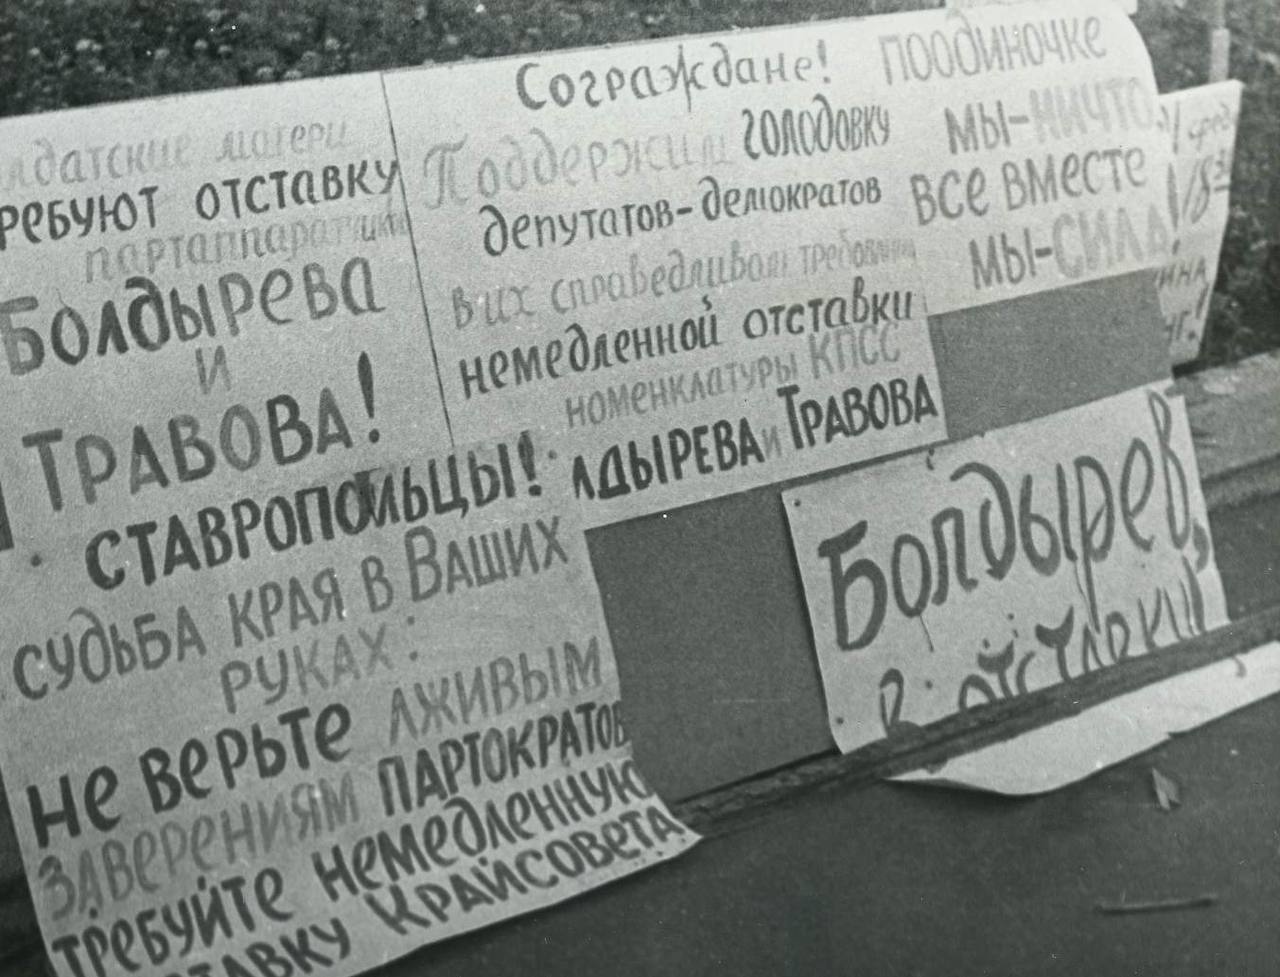 лдатские матери
ребуют отставку
партаппаратчика
Болдырева
и
Травова!
Сограждане!
Поддержим голодовку
депутатов-демократов
в их справедливом требовании
немедленной отставки
номенклатуры КПСС
лдырева и Травова
поодиночке
мы-ничто,
все вместе
мы-сила!
сред
1/8
ина
нг!
Ставропольцы!
судьба края в Ваших
руках:
не верьте лживым
заверениям партократов
требуйте немедленную
ставку Крайсовета
Болдырев,
в отставку!